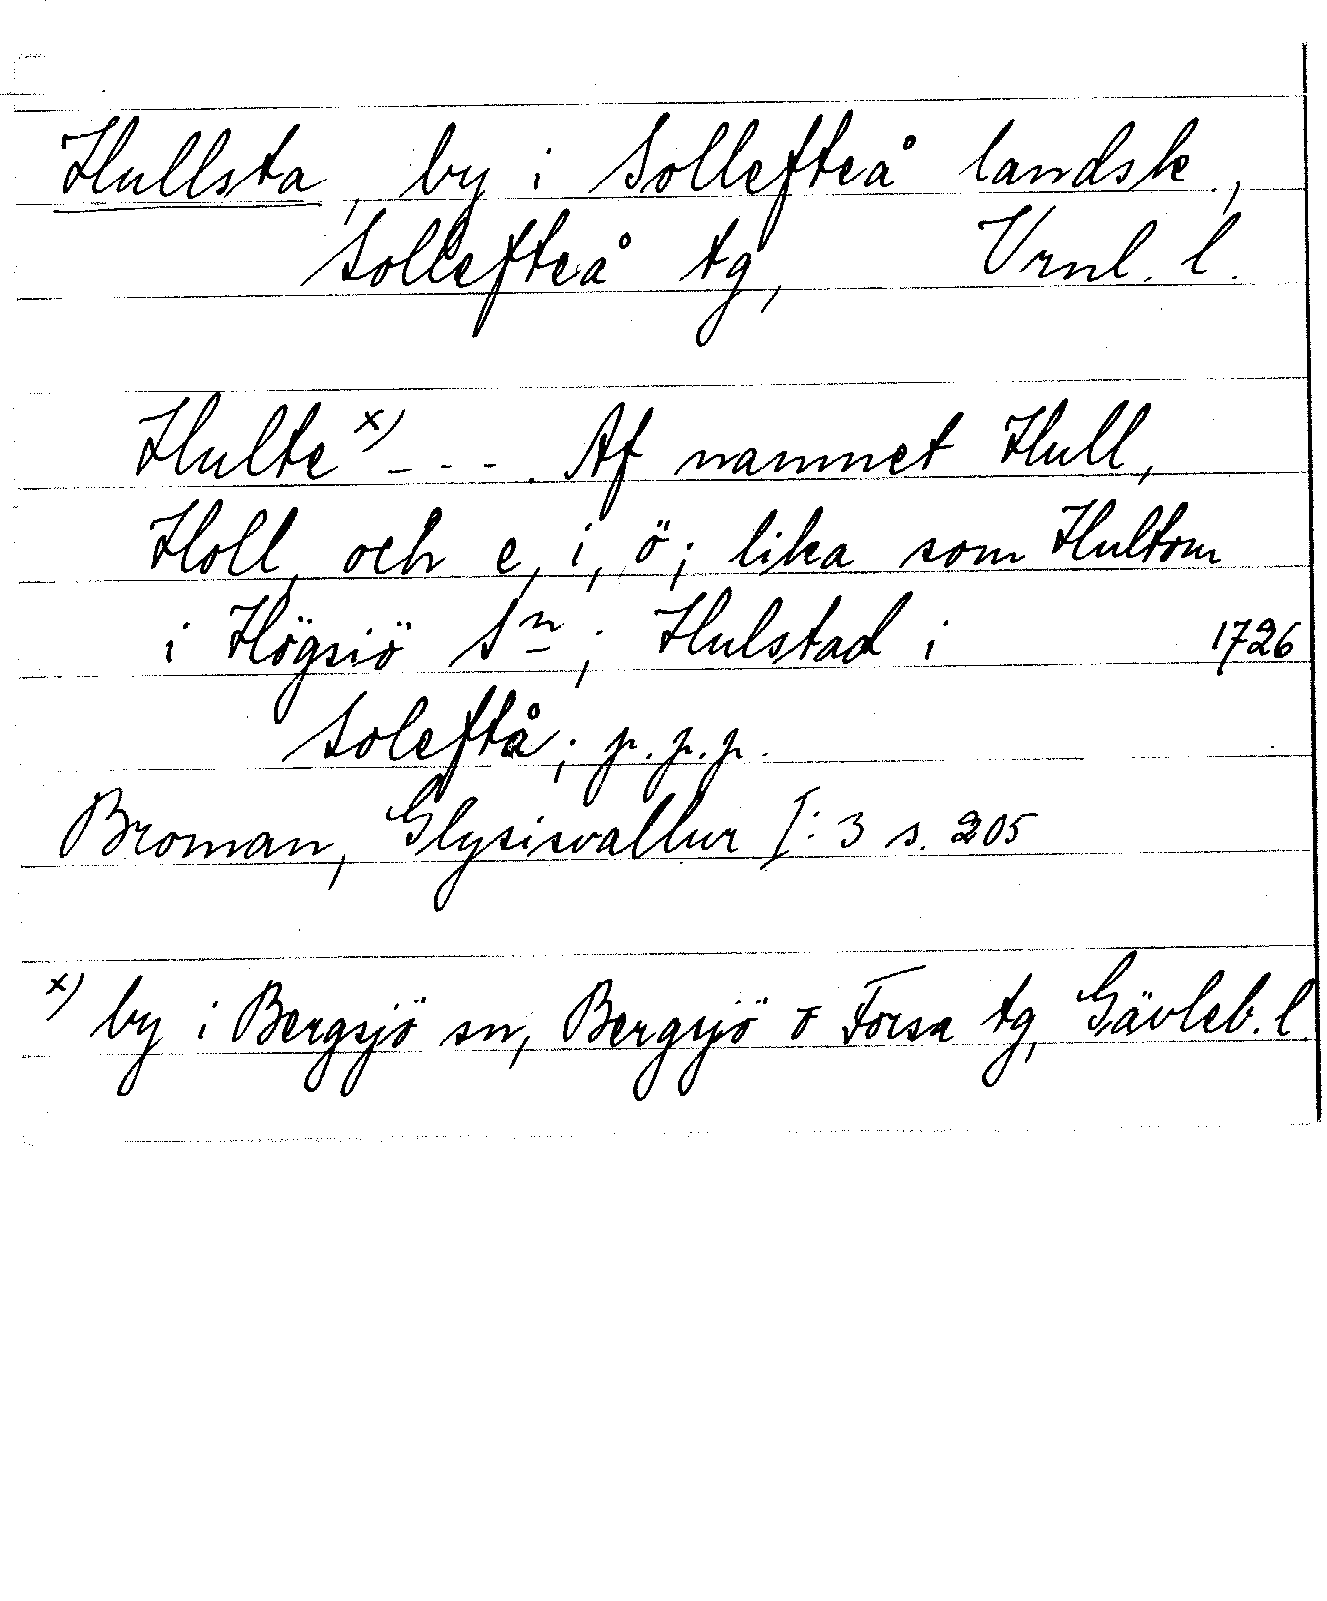 Hullsta, by i Sollefteå landsk.,
Sollefteå tg, Vrnl. l.
Hulte x) - - - . Af namnet Hull,
Holl, och e, i, ö; lika som Hultom
i Högsiö Sn; Hulstad i 1726
Soleftå; p.p.p.
Broman, Glysisvallur I:3 s. 205
x) by i Bergsjö sn, Bergsjö o Forsa tg, Gävleb. l.